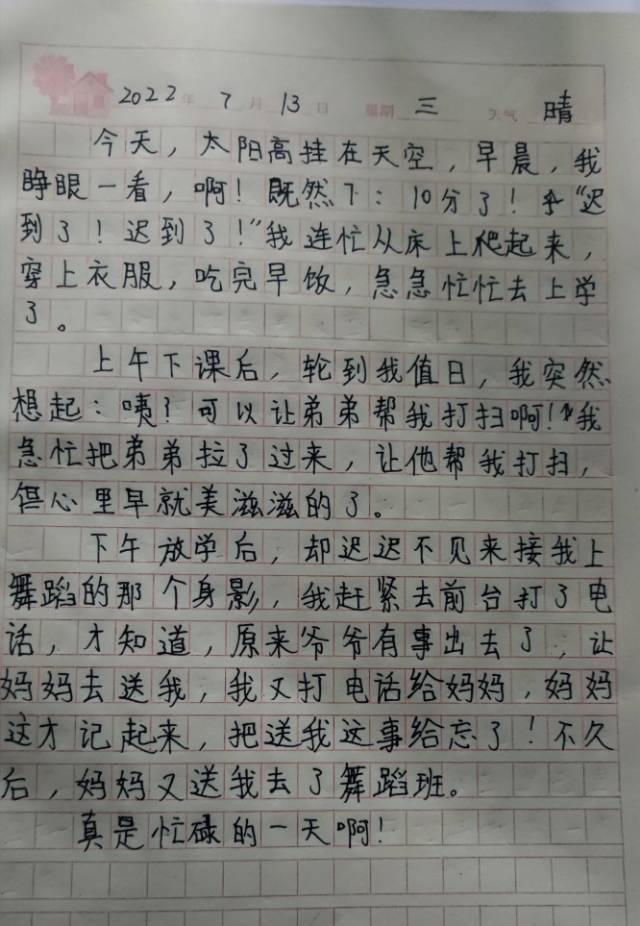 2022年7月13日 星期三 天气晴
今天，太阳高挂在天空，早晨，我
睁眼一看，啊！既然7：10分了！“迟
到了！迟到了！”我连忙从床上爬起来，
穿上衣服，吃完早饭，急急忙忙去上学
了。
上午下课后，轮到我值日，我突然
想起：咦？可以让弟弟帮我打扫啊！”我
急忙把弟弟拉了过来，让他帮我打扫，
但心里早就美滋滋的了。
下午放学后，却迟迟不见来接我上
舞蹈的那个身影，我赶紧去前台打了电
话，才知道，原来爷爷有事出去了，让
妈妈去送我，我又打电话给妈妈，妈妈
这才记起来，把送我这事给忘了！不久
后，妈妈又送我去了舞蹈班。
真是忙碌的一天啊！